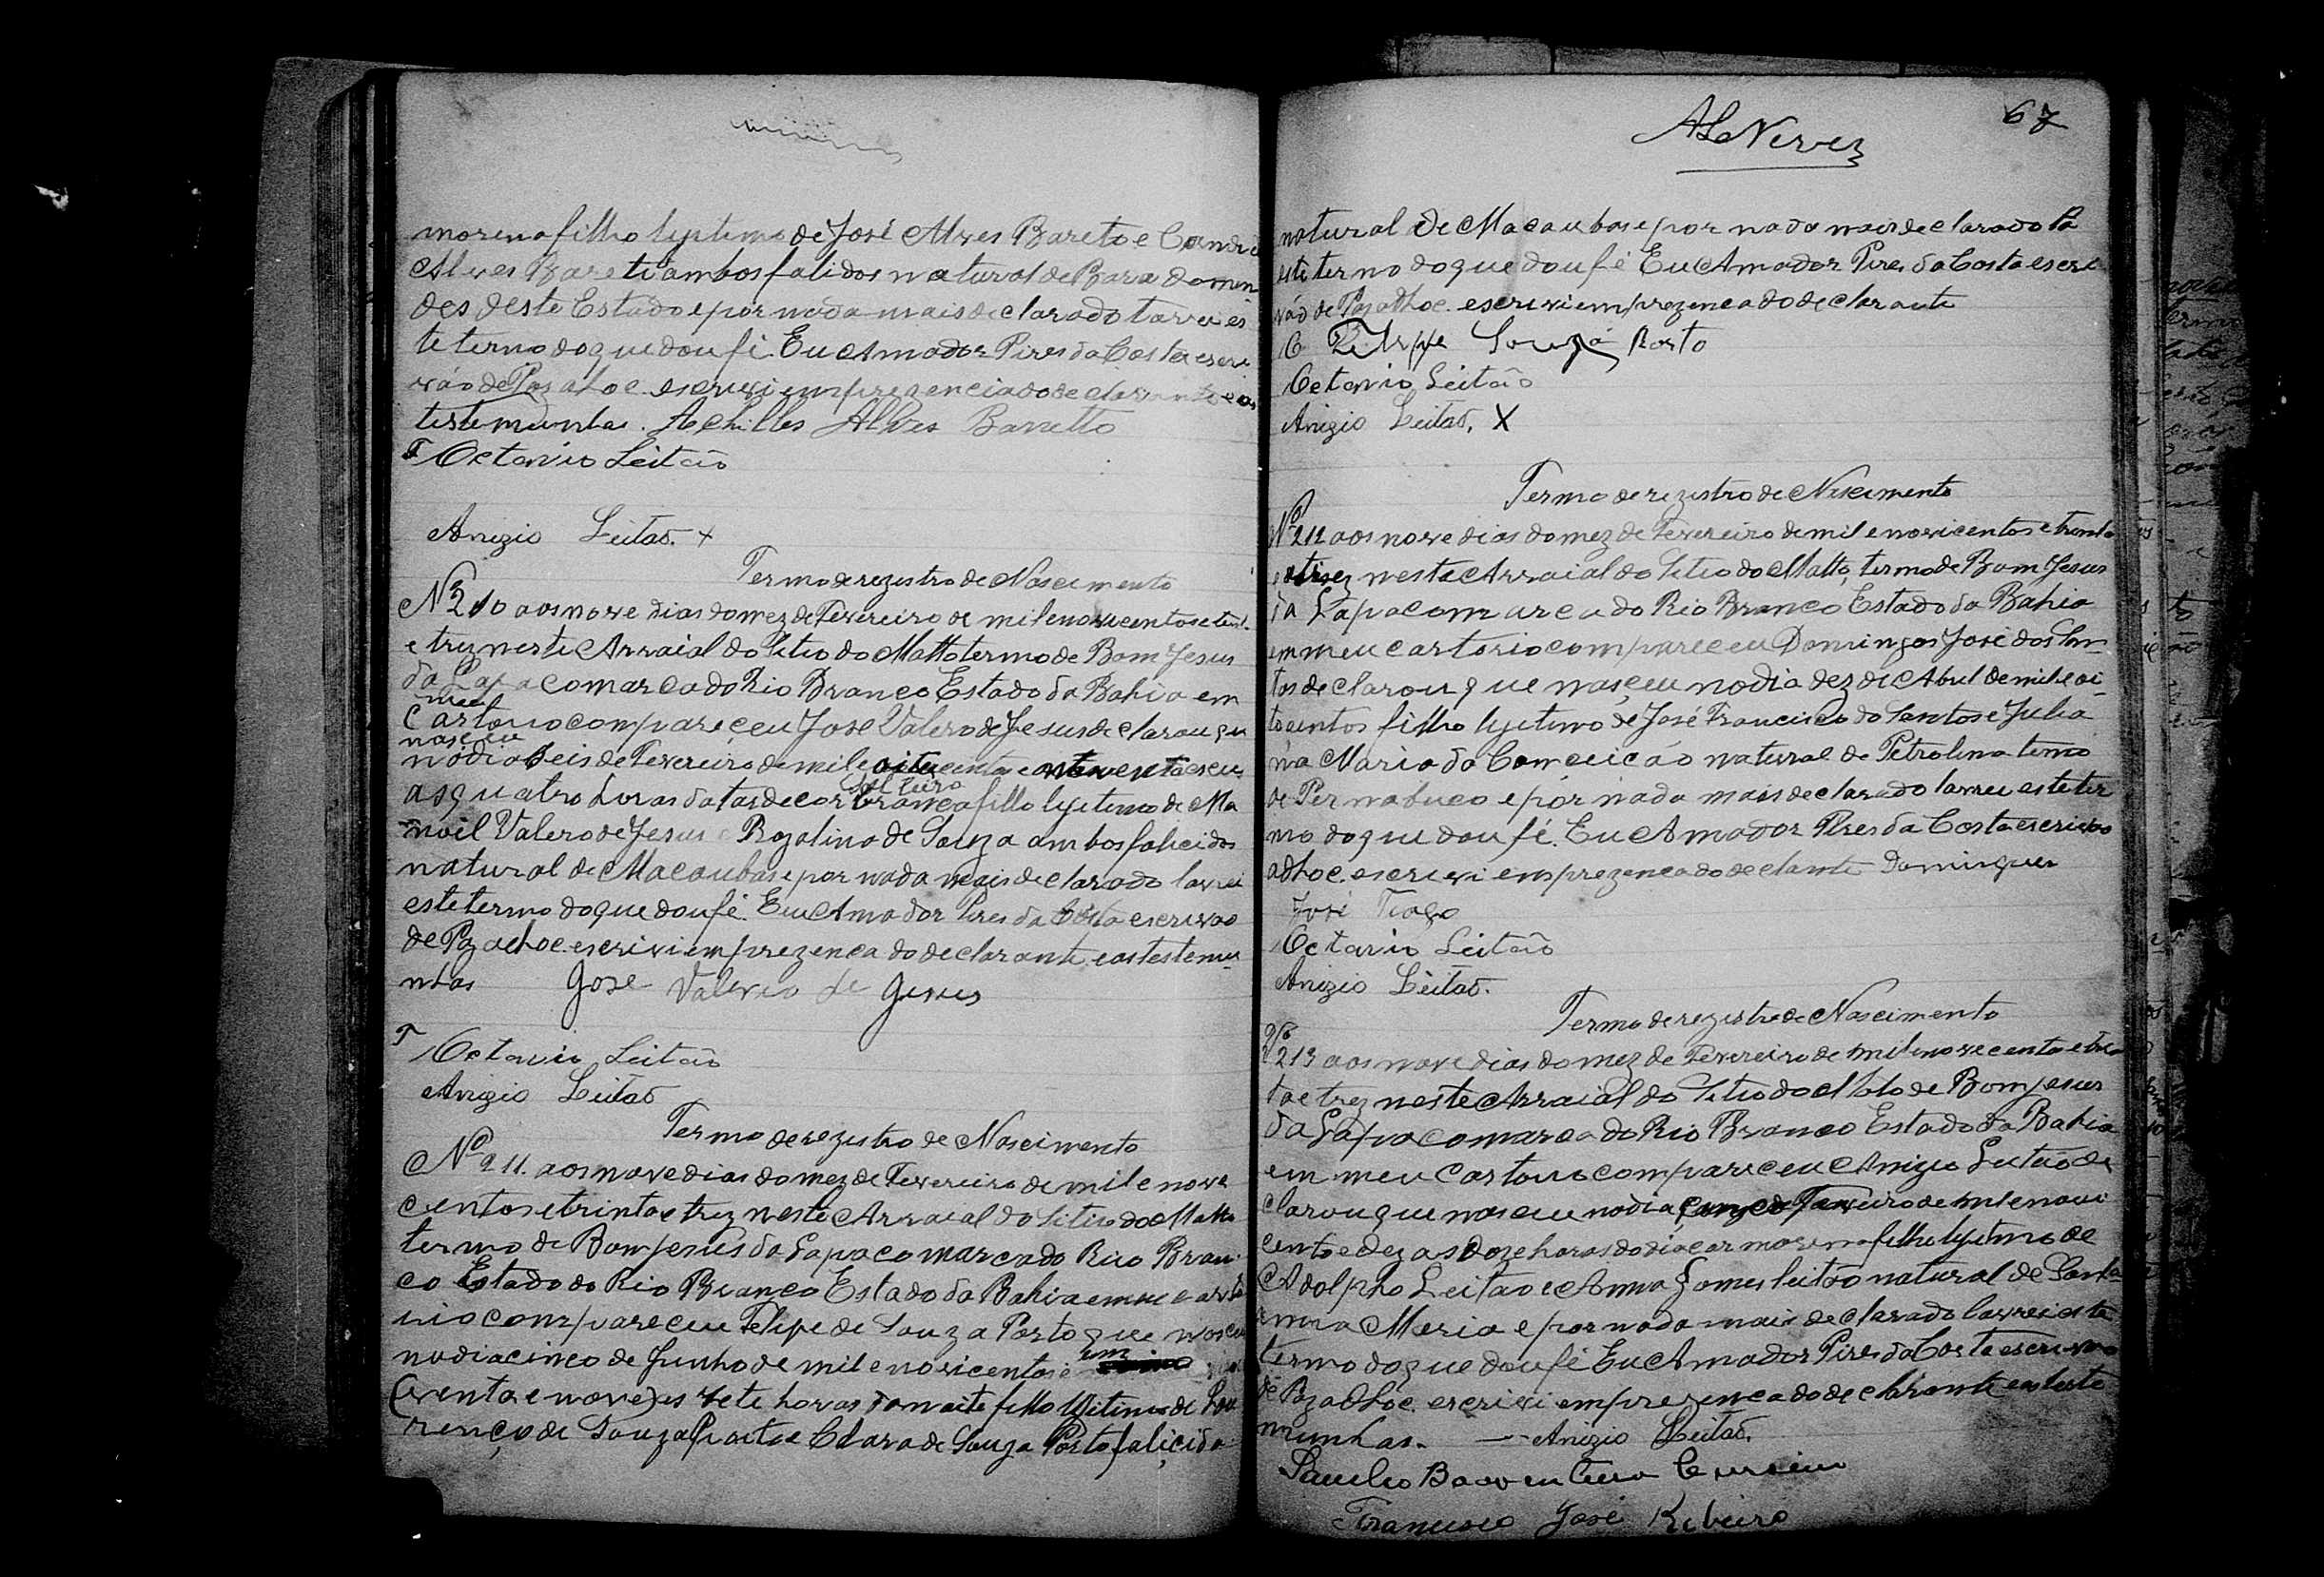 moreno filho ligitimo de José Alves Bareto e
Alves Bareti ambos falidos natural de Bara do
des deste Estado e por nada mais declarado larvei es
te termo do que dou fé. Eu Amador Pires da Costa escri
vão de Paz ad hoc escrevi em prezencia do declarante e as
testemunhas. Achilles Alves Barretto
T Octavio Leitão
Anizio Leitaõ. x
Termo de rezistro de Nascimento
Nº 210 aos nove dias do mez de Fevereiro de mil e novicentos e
e trez neste Arraial do Sitio do Matto termo de Bom Jesus
da Lapa comarca do Rio Branco Estado da Bahia em
meu
Cartorio compareceu José Valero de Jesus declarou que
nasceu
no dia seis de Fevereiro de mil e oitocentos e
Solteiro
as quatro horas da tarde cor branca filho ligitimo de Ma
noil Valero de Jesus e Rozalina de Souza ambos falicidos
natural de Macaubas e por nada mais declarado lavrei
este termo do que dou fé. Eu Amador Pires da Costa escrivao
de Paz ad hoc. escrivi em prezenca do declarante e as testemu
nhas José Valerio de Jesus
T Octavio Leitão
Anizio Leitaõ
Termo de rezistro de Nascimento
Nº 211. aos nove dias do mez de Fevereiro de mil e nove
centos e trinta e trez neste Arraial do Sitio do Matto
termo de Bom Jesus da Lapa comarca do Rio Bran
co Estado do Rio Branco Estado da Bahia em meu carto
rio compareceu Felipe de Souza Porto que nasceu
no dia cinco de Junho de mil e novicentos e
em
(venta e nove) as sete horas da noite filho ligitimo de Lou
renço de Souza Porto e Clara de Souza Porto falicida
67
ALNeves
natural de Macaubas e por nada mais declarado
este termo do que dou fé Eu Amador Pires da Costa escri
vão de Paz ad hoc. escrivi em prezenca do declarante
Felipe Souza Porto
Octavio Leitão
Anizio Leitaõ. X
Termo de rezistro de Nascimento
Nº 212 aos nove dias do mez de Fevereiro de mil e novicentos e trinta
e trez neste Arraial do Sitio do Matto, termo de Bom Jesus
da Lapa comarca do Rio Branco Estado da Bahia
em meu cartorio compareceu Domingos José dos San
tos declarou que nasceu no dia dez de Abril de mil e oi
tocentos filho ligitimo de José Francisco do Santos e Julia
na Maria da Conceicão natural de Petrolina termo
de Pernabuco e por nada mais declarado lavreu este ter
mo do que dou fé. Eu Amador Pires da Costa escrivao
ad hoc. escrevi em prezenca do declante Domingues
José Tiago
Octavio Leitão
Anizio Leitaõ.
Termo de rezistro de Nascimento
Nº 213 aos nove dias do mez de Fevereiro de mil e novecentos e trin
ta e trez neste Arraial do Sitio do Mato de Bom Jesus
da Lapa comarca do Rio Branco Estado da Bahia
em meu Cartorio compareceu Anizio Leitão de
clarou que nasceu no dia de Janeiro de mil e novi
cento e dez as doze horas do dia cor moreno filho ligitimo de
Adolpho Leitão e Anna Gomes leitão natural de Santa
anna Maria e por nada mais declarado lavrei este
termo do que dou fé Eu Amador Pires da Costa escrivao
de Paz ad hoc. escrivi em prezenca do declarante e as teste
munhas. — Anizio Leitaõ.
Boaventura
Francisco José Ribeiro